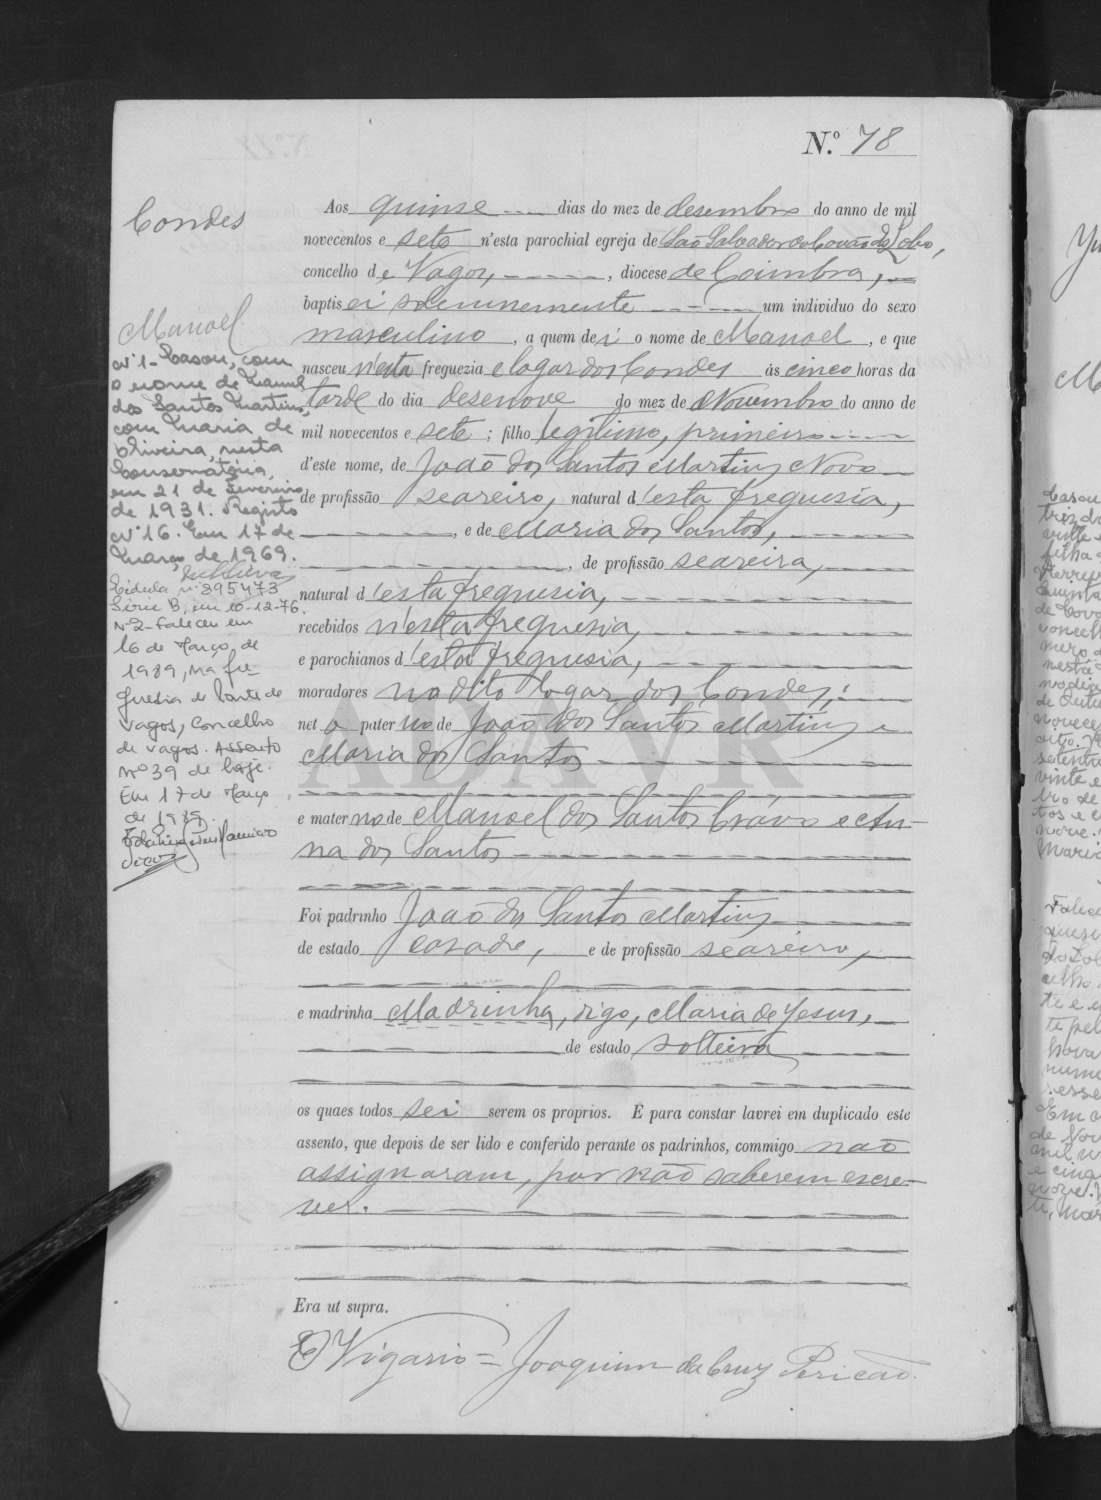 N.º 78
Condes
Manoel
Nº 1 - Casou, com
o nome de Manuel
dos Santos Martins,
com Maria de
Oliveira, nesta
Conservatória,
em 21 de Fevereiro
de 1931. Registo
Nº 16. Em 17 de
Março de 1969.
Cédula nº 895473
Série B, em 10-12-76.
Nº 2 - Faleceu em
16 de Março de
1989, na fre-
guesia de Ponte de
Vagos, Concelho
de Vagos. Assento
nº 39 de hoje.
Em 17 de Março
de 1989.
Aos quinse dias do mez de desembro do anno de mil
novecentos e sete n'esta parochial egreja de São Salvador do Covão do Lobo,
concelho de Vagos, , diocese de Coimbra,
baptisei solemnemente um individuo do sexo
masculino , a quem dei o nome de Manoel , e que
nasceu n'esta freguezia e logar dos Condes ás cinco horas da
tarde do dia desenove do mez de Novembro do anno de
mil novecentos e sete ; filho legitimo, primeiro
d'este nome, de João dos Santos Martins Novo
de profissão seareiro, natural d'esta freguesia,
, e de Maria dos Santos,
, de profissão seareira,
natural d'esta freguesia,
recebidos n'esta freguesia,
e parochianos d'esta freguesia,
moradores no dito logar dos Condes;
neto paterno de João dos Santos Martins e
Maria dos Santos
e materno de Manoel dos Santos Crávo e An-
na dos Santos
Foi padrinho João dos Santos Martins
de estado casado, e de profissão seareiro,
e madrinha Madrinha, digo, Maria de Jesus,
de estado solteira
os quaes todos sei serem os proprios. E para constar lavrei em duplicado este
assento, que depois de ser lido e conferido perante os padrinhos, commigo não
assignaram, por não saberem escre-
ver.
Era ut supra.
O Vigario = Joaquim da Cruz Pericão.
ADAVR